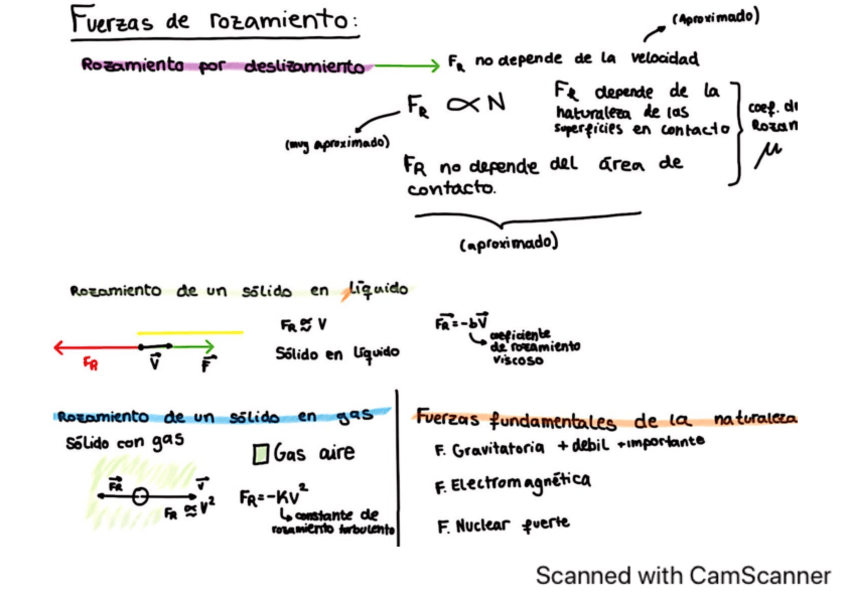 Fuerzas de rozamiento:
(Aproximado)
Rozamiento por deslizamiento → FR no depende de la velocidad
FR ∝ N
(muy aproximado)
FR depende de la
naturaleza de las
superficies en contacto
coef. d
Rozam
μ
FR no depende del área de
contacto.
(aproximado)
Rozamiento de un sólido en líquido
FR ≈ V
Sólido en líquido
FR = -bV
coeficiente
de rozamiento
viscoso
FR
V
F
Rozamiento de un sólido en gas
Sólido con gas
Gas aire
FR
V
FR ≈ V²
FR = -KV²
constante de
rozamiento turbulento
Fuerzas fundamentales de la naturaleza
F. Gravitatoria + debil + importante
F. Electromagnética
F. Nuclear fuerte
Scanned with CamScanner